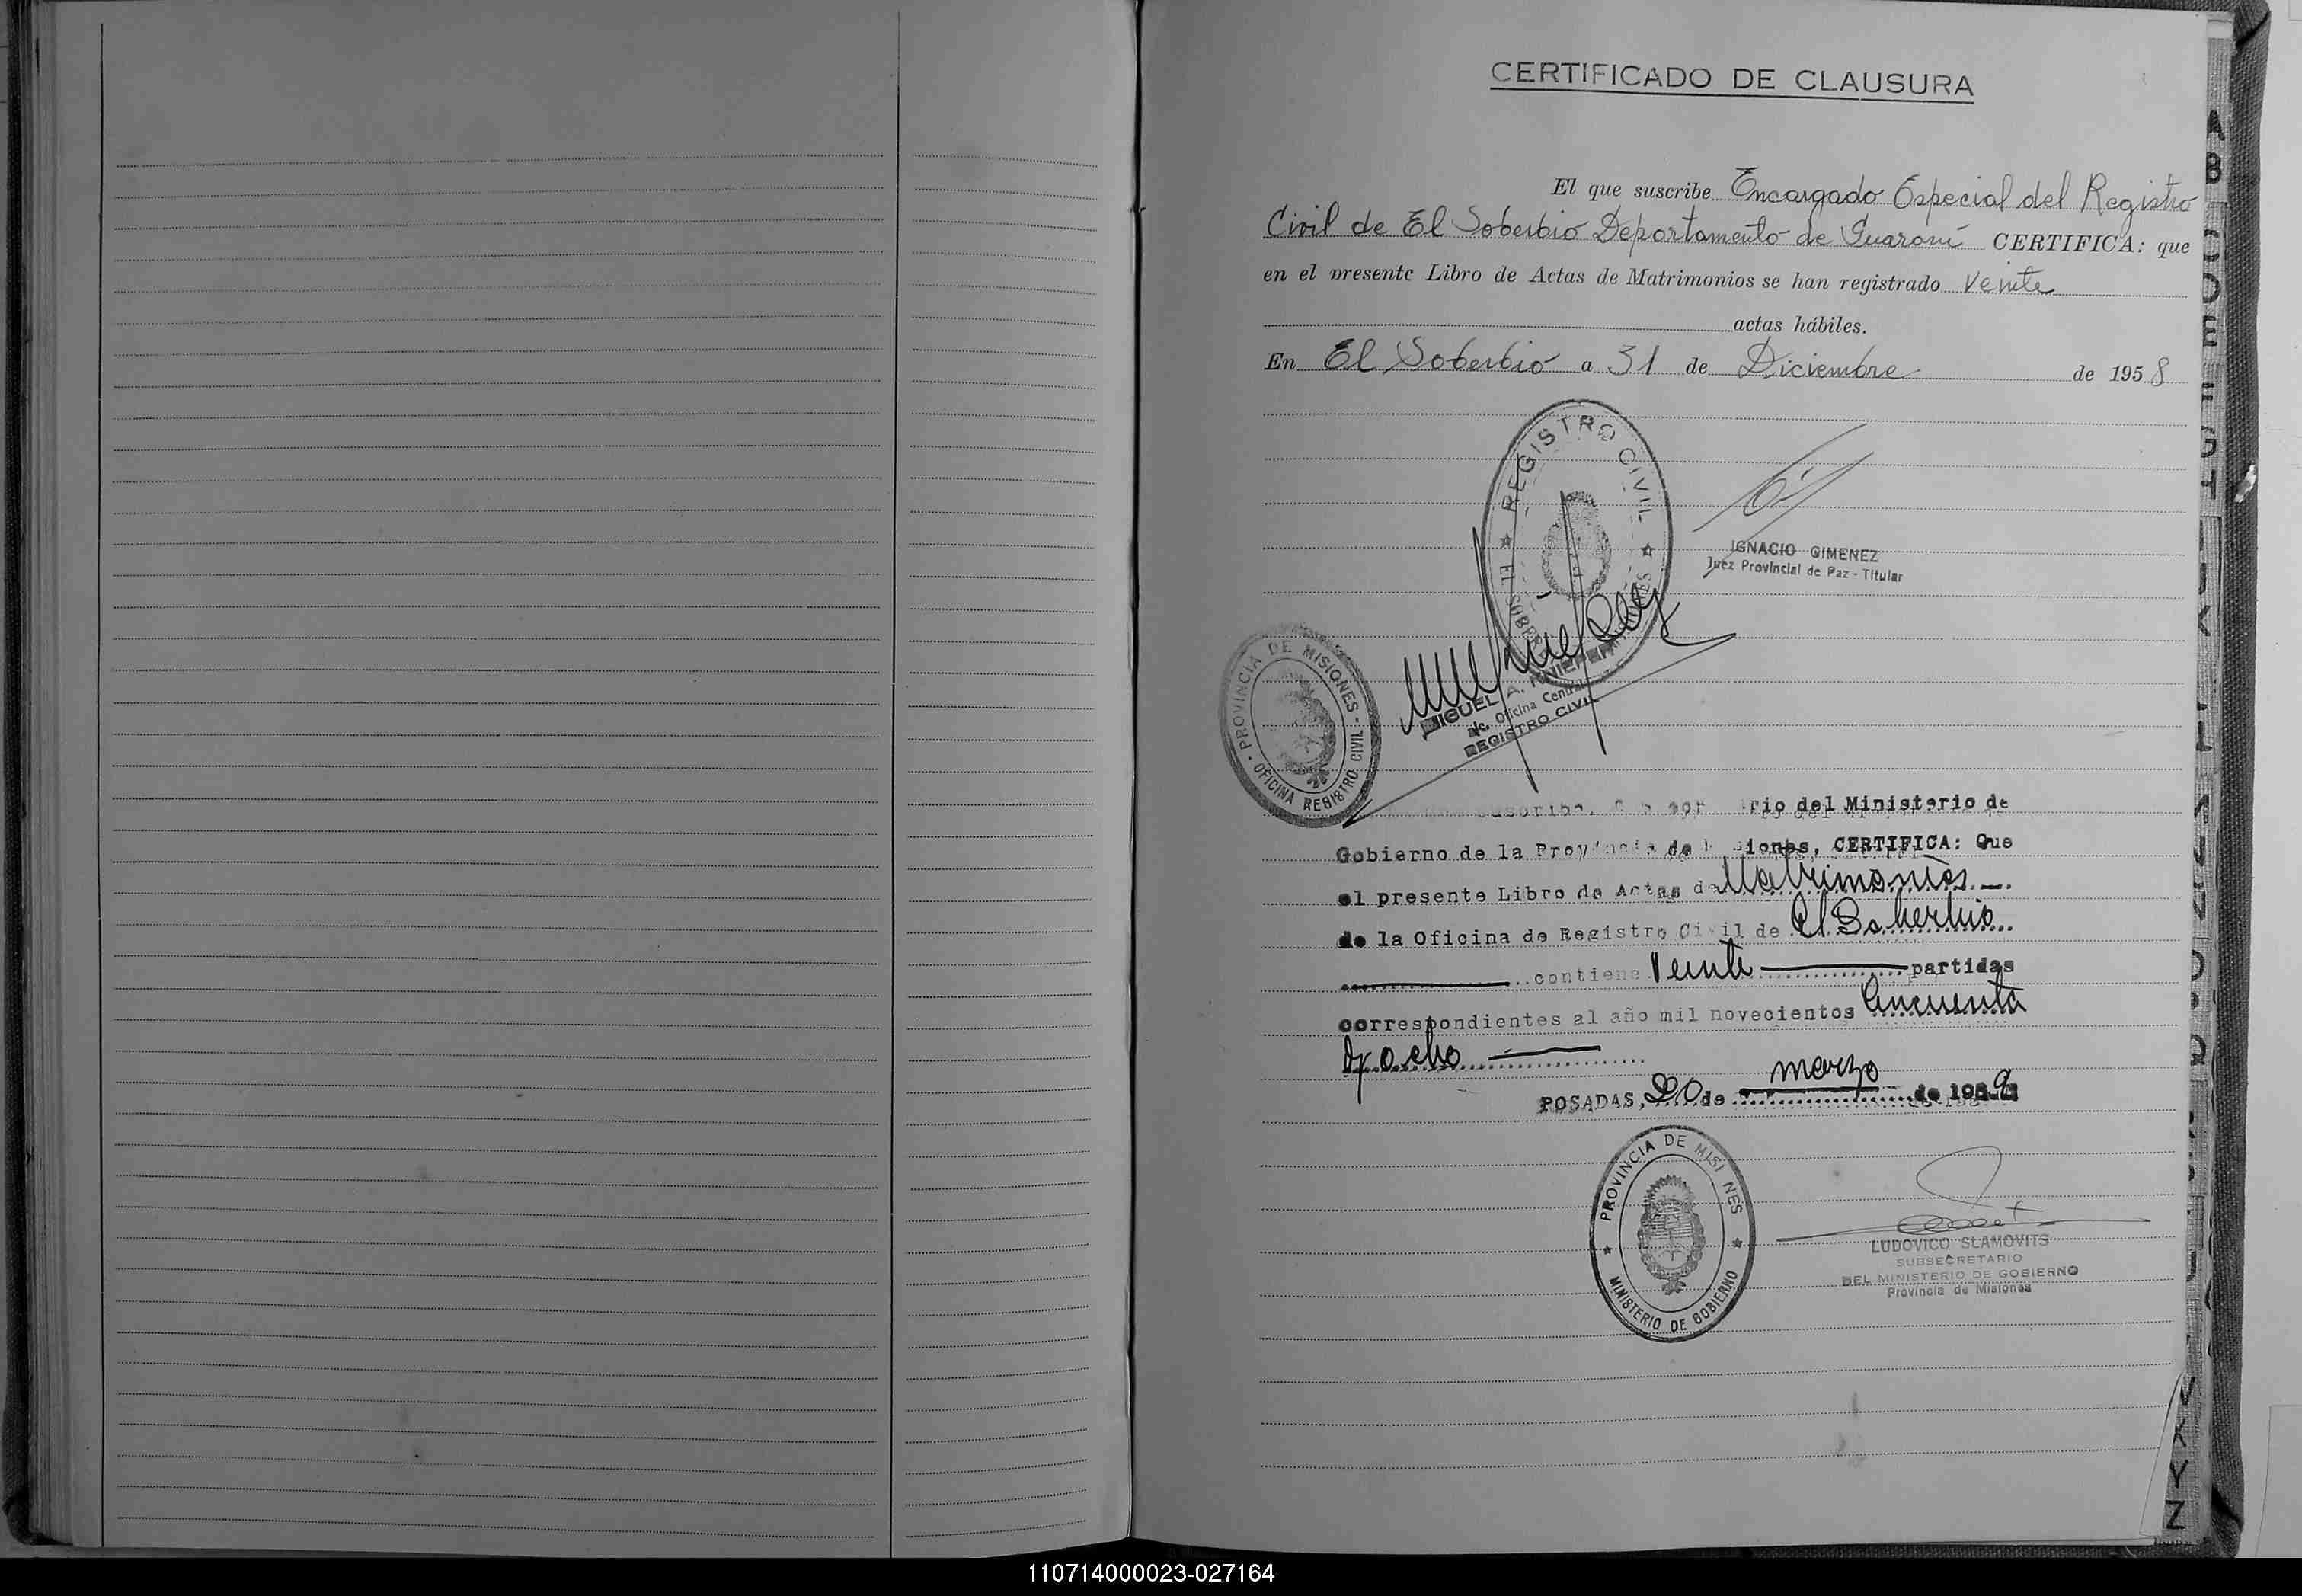 CERTIFICADO DE CLAUSURA
El que suscribe Encargado Especial del Registro
Civil de El Soberbio Departamento de Guaraní CERTIFICA: que
en el presente Libro de Actas de Matrimonios se han registrado veinte
actas hábiles.
En El Soberbio a 31 de Diciembre de 1958
REGISTRO CIVIL
IGNACIO GIMENEZ
Juez Provincial de Paz - Titular
PROVINCIA DE MISIONES - OFICINA REGISTRO CIVIL -
MIGUEL A.
a/c. Oficina Central
REGISTRO CIVIL
suscribe, rio del Ministerio de
Gobierno de la Provincia de Misiones, CERTIFICA: Que
el presente Libro de Actas de Matrimonios
de la Oficina de Registro Civil de El Soberbio
contiene Veinte partidas
correspondientes al año mil novecientos Cincuenta
y ocho
POSADAS, 20 de marzo de 1959
PROVINCIA DE MISIONES
MINISTERIO DE GOBIERNO
LUDOVICO SLAMOVITS
SUBSECRETARIO
DEL MINISTERIO DE GOBIERNO
Provincia de Misiones
V
X
Y
Z
110714000023-027164